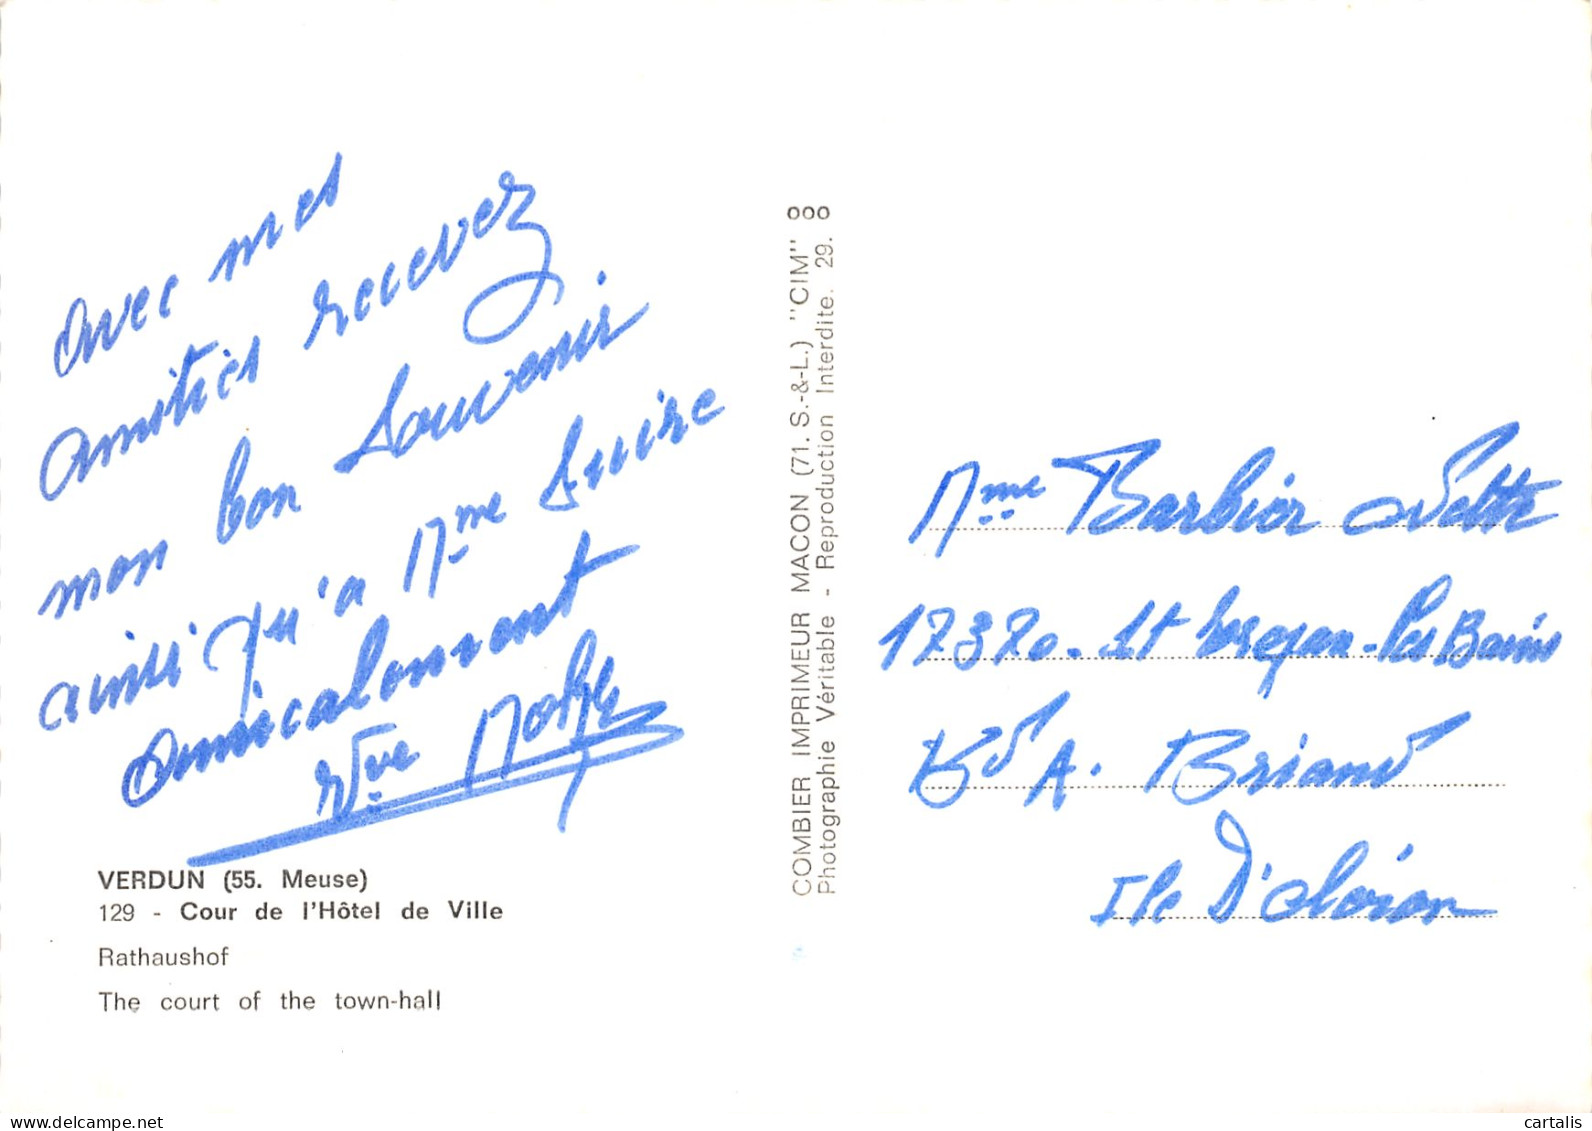 avec mes
amitiés recevez
mon bon souvenir
ainsi qu'à Mme
amicalement
Vve
VERDUN (55. Meuse)
129 - Cour de l'Hôtel de Ville
Rathaushof
The court of the town-hall
COMBIER IMPRIMEUR MACON (71. S.-&-L.) "CIM"
Photographie Véritable - Reproduction Interdite. 29.
Mme Barbier
17370. St -les Bains
Bd A. Briand
Ile D'oléron
www.delcampe.net
cartalis